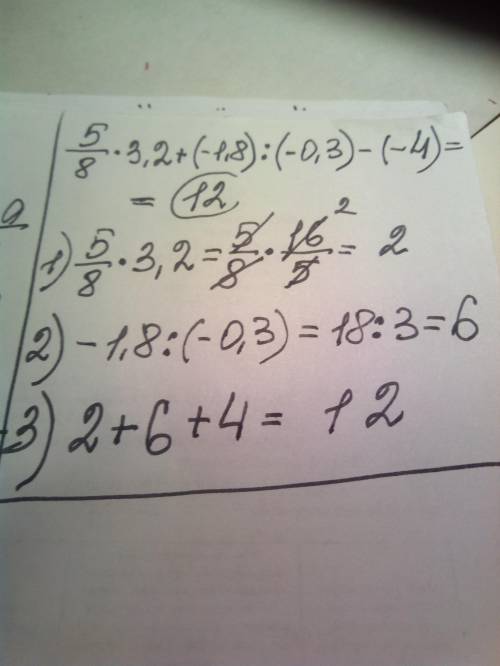 5/8 · 3,2 + (-1,8) : (-0,3) - (-4) =
= 12
1) 5/8 · 3,2 = 5/8 · 16/5 2 = 2
2) -1,8 : (-0,3) = 18 : 3 = 6
3) 2 + 6 + 4 = 12